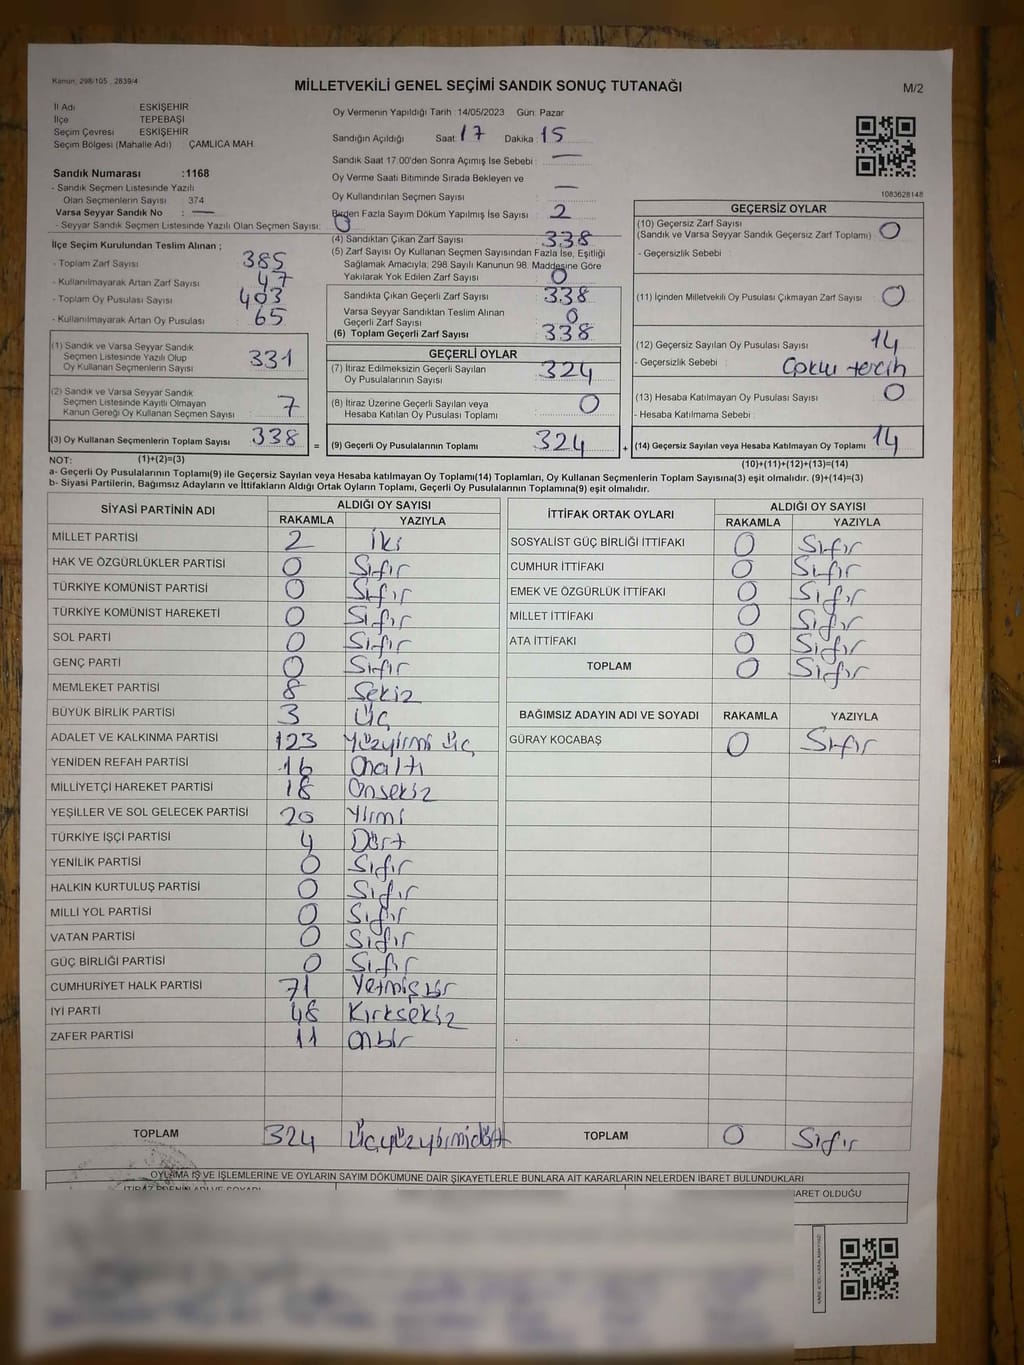 Kanun, 298/105 , 2839/4
MİLLETVEKİLİ GENEL SEÇİMİ SANDIK SONUÇ TUTANAĞI
M/2
İl Adı ESKİŞEHİR
İlçe TEPEBAŞI
Seçim Çevresi ESKİŞEHİR
Seçim Bölgesi (Mahalle Adı) ÇAMLICA MAH.
Sandık Numarası :1168
- Sandık Seçmen Listesinde Yazılı
Olan Seçmenlerin Sayısı : 374
Varsa Seyyar Sandık No : —
- Seyyar Sandık Seçmen Listesinde Yazılı Olan Seçmen Sayısı: 0
İlçe Seçim Kurulundan Teslim Alınan ;
- Toplam Zarf Sayısı 385
- Kullanılmayarak Artan Zarf Sayısı 47
- Toplam Oy Pusulası Sayısı 403
- Kullanılmayarak Artan Oy Pusulası 65
(1) Sandık ve Varsa Seyyar Sandık
Seçmen Listesinde Yazılı Olup
Oy Kullanan Seçmenlerin Sayısı 331
(2) Sandık ve Varsa Seyyar Sandık
Seçmen Listesinde Kayıtlı Olmayan
Kanun Gereği Oy Kullanan Seçmen Sayısı 7
(3) Oy Kullanan Seçmenlerin Toplam Sayısı 338 =
Oy Vermenin Yapıldığı Tarih : 14/05/2023 Gün: Pazar
Sandığın Açıldığı Saat 17 Dakika 15
Sandık Saat 17.00'den Sonra Açımış İse Sebebi : —
Oy Verme Saati Bitiminde Sırada Bekleyen ve
Oy Kullandırılan Seçmen Sayısı —
Birden Fazla Sayım Döküm Yapılmış İse Sayısı 2
(4) Sandıktan Çıkan Zarf Sayısı 338
(5) Zarf Sayısı Oy Kullanan Seçmen Sayısından Fazla İse, Eşitliği
Sağlamak Amacıyla; 298 Sayılı Kanunun 98. Maddesine Göre
Yakılarak Yok Edilen Zarf Sayısı 0
Sandıkta Çıkan Geçerli Zarf Sayısı 338
Varsa Seyyar Sandıktan Teslim Alınan
Geçerli Zarf Sayısı 0
(6) Toplam Geçerli Zarf Sayısı 338
GEÇERLİ OYLAR
(7) İtiraz Edilmeksizin Geçerli Sayılan
Oy Pusulalarının Sayısı 324
(8) İtiraz Üzerine Geçerli Sayılan veya
Hesaba Katılan Oy Pusulası Toplamı 0
(9) Geçerli Oy Pusulalarının Toplamı 324 +
1083628148
GEÇERSİZ OYLAR
(10) Geçersiz Zarf Sayısı
(Sandık ve Varsa Seyyar Sandık Geçersiz Zarf Toplamı) 0
- Geçersizlik Sebebi :
(11) İçinden Milletvekili Oy Pusulası Çıkmayan Zarf Sayısı 0
(12) Geçersiz Sayılan Oy Pusulası Sayısı 14
- Geçersizlik Sebebi : Çoklu tercih
(13) Hesaba Katılmayan Oy Pusulası Sayısı 0
- Hesaba Katılmama Sebebi :
(14) Geçersiz Sayılan veya Hesaba Katılmayan Oy Toplamı 14
NOT: (1)+(2)=(3)
(10)+(11)+(12)+(13)=(14)
a- Geçerli Oy Pusulalarının Toplamı(9) ile Geçersiz Sayılan veya Hesaba katılmayan Oy Toplamı(14) Toplamları, Oy Kullanan Seçmenlerin Toplam Sayısına(3) eşit olmalıdır. (9)+(14)=(3)
b- Siyasi Partilerin, Bağımsız Adayların ve İttifakların Aldığı Ortak Oyların Toplamı, Geçerli Oy Pusulalarının Toplamına(9) eşit olmalıdır.
SİYASİ PARTİNİN ADI ALDIĞI OY SAYISI
RAKAMLA YAZIYLA
MİLLET PARTİSİ 2 İki
HAK VE ÖZGÜRLÜKLER PARTİSİ 0 Sıfır
TÜRKİYE KOMÜNİST PARTİSİ 0 Sıfır
TÜRKİYE KOMÜNİST HAREKETİ 0 Sıfır
SOL PARTİ 0 Sıfır
GENÇ PARTİ 0 Sıfır
MEMLEKET PARTİSİ 8 Sekiz
BÜYÜK BİRLİK PARTİSİ 3 Üç
ADALET VE KALKINMA PARTİSİ 123 Yüzyirmi üç
YENİDEN REFAH PARTİSİ 16 Onaltı
MİLLİYETÇİ HAREKET PARTİSİ 18 Onsekiz
YEŞİLLER VE SOL GELECEK PARTİSİ 20 Yirmi
TÜRKİYE İŞÇİ PARTİSİ 4 Dört
YENİLİK PARTİSİ 0 Sıfır
HALKIN KURTULUŞ PARTİSİ 0 Sıfır
MİLLİ YOL PARTİSİ 0 Sıfır
VATAN PARTİSİ 0 Sıfır
GÜÇ BİRLİĞİ PARTİSİ 0 Sıfır
CUMHURİYET HALK PARTİSİ 71 Yetmişbir
İYİ PARTİ 48 Kırksekiz
ZAFER PARTİSİ 11 Onbir
TOPLAM 324 Üçyüzyirmidört
İTTİFAK ORTAK OYLARI ALDIĞI OY SAYISI
RAKAMLA YAZIYLA
SOSYALİST GÜÇ BİRLİĞİ İTTİFAKI 0 Sıfır
CUMHUR İTTİFAKI 0 Sıfır
EMEK VE ÖZGÜRLÜK İTTİFAKI 0 Sıfır
MİLLET İTTİFAKI 0 Sıfır
ATA İTTİFAKI 0 Sıfır
TOPLAM 0 Sıfır
BAĞIMSIZ ADAYIN ADI VE SOYADI RAKAMLA YAZIYLA
GÜRAY KOCABAŞ 0 Sıfır
TOPLAM 0 Sıfır
OYLAMA İŞ VE İŞLEMLERİNE VE OYLARIN SAYIM DÖKÜMÜNE DAİR ŞİKAYETLERLE BUNLARA AİT KARARLARIN NELERDEN İBARET BULUNDUKLARI
İTİRAZ EDENİN ADI VE SOYADI
İBARET OLDUĞU